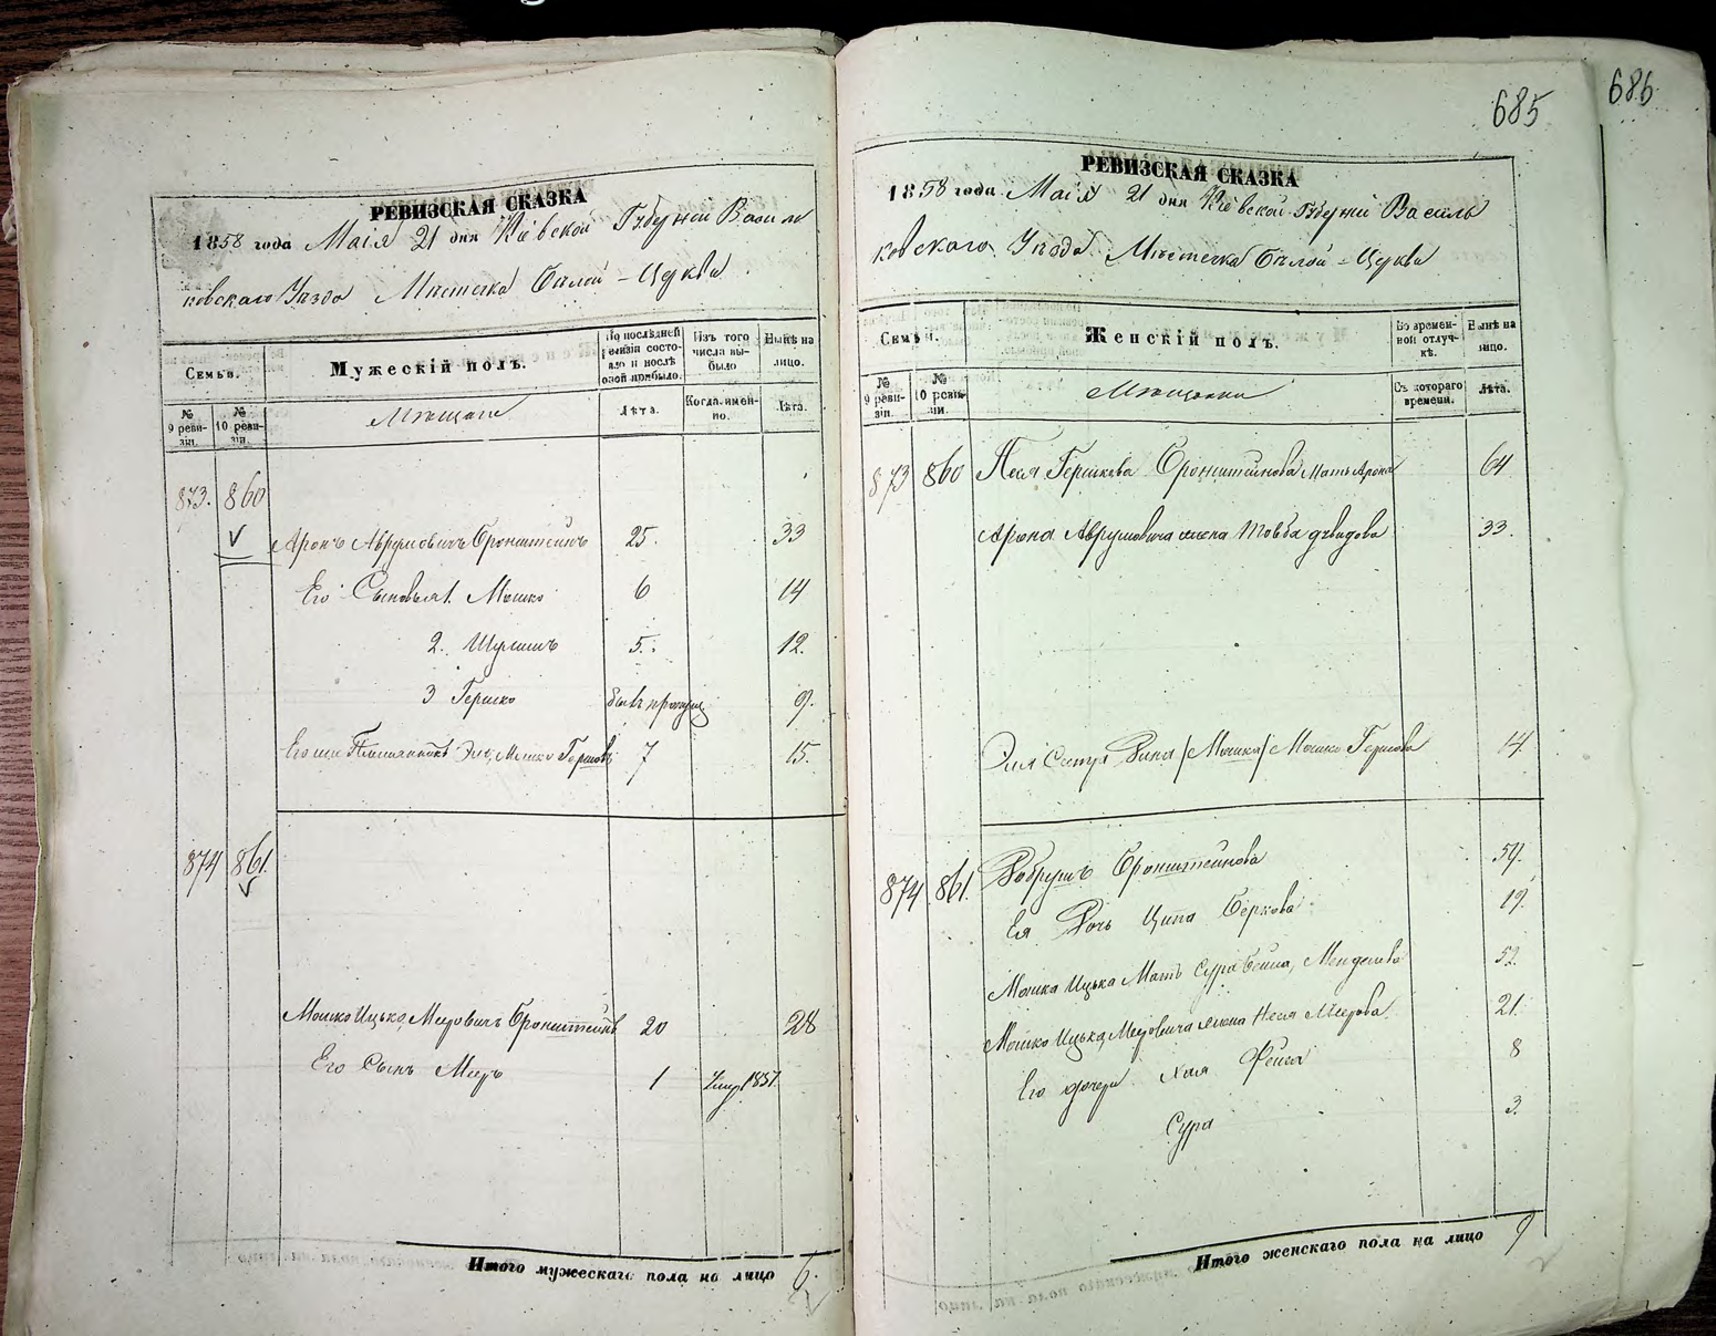 685
686
РЕВИЗСКАЯ СКАЗКА
1858 года Маія 21 дня Кіевской Губерніи Василь
ковскаго Уѣзда Мѣстечка Бѣлой-Церкви
Семьи.
Мужескій полъ.
По послѣдней ревизіи состояло и послѣ оной прибыло.
Изъ того числа выбыло
Нынѣ на лицо.
№ 9 ревизіи.
№ 10 ревизіи.
Мѣщане
Лѣта.
Когда именно.
Лѣта.
873. 860
Аронъ Аврумовичъ Бронштейнъ 25. 33
Его Сыновья 1. Мошко 6 14
2. Шулимъ 5. 12.
3 Гершко 9.
Его же Племянникъ Мошко Гершовъ 7 15.
874 861.
Мошко Ицька Меровичъ Бронштейнъ 20 28
Его Сынъ Меръ 1 Умер 1857
Итого мужескаго пола на лицо 6.
РЕВИЗСКАЯ СКАЗКА
1858 года Маія 21 дня Кіевской Губерніи Василь
ковскаго Уѣзда Мѣстечка Бѣлой-Церкви
Семьи.
Женскій полъ.
Во временной отлучкѣ.
Нынѣ на лицо.
№ 9 ревизіи.
№ 10 ревизіи.
Мѣщанки
Съ котораго времени.
Лѣта.
873 860 Песя Гершкова Бронштейнова Мать Арона 64
Арона Аврумовича жена Товба Давидова 33.
Мошко Гершова 14.
874 861. Добрушъ Бронштейнова 59.
Ея Дочь Ципа Беркова 19.
Мошка Ицька Мать Сура Бейла, Менделева 52.
Мошко Ицька Меровича жена Неся Меерова 21.
Его дочери Хая Фейга 8
Сура 3.
Итого женскаго пола на лицо 9